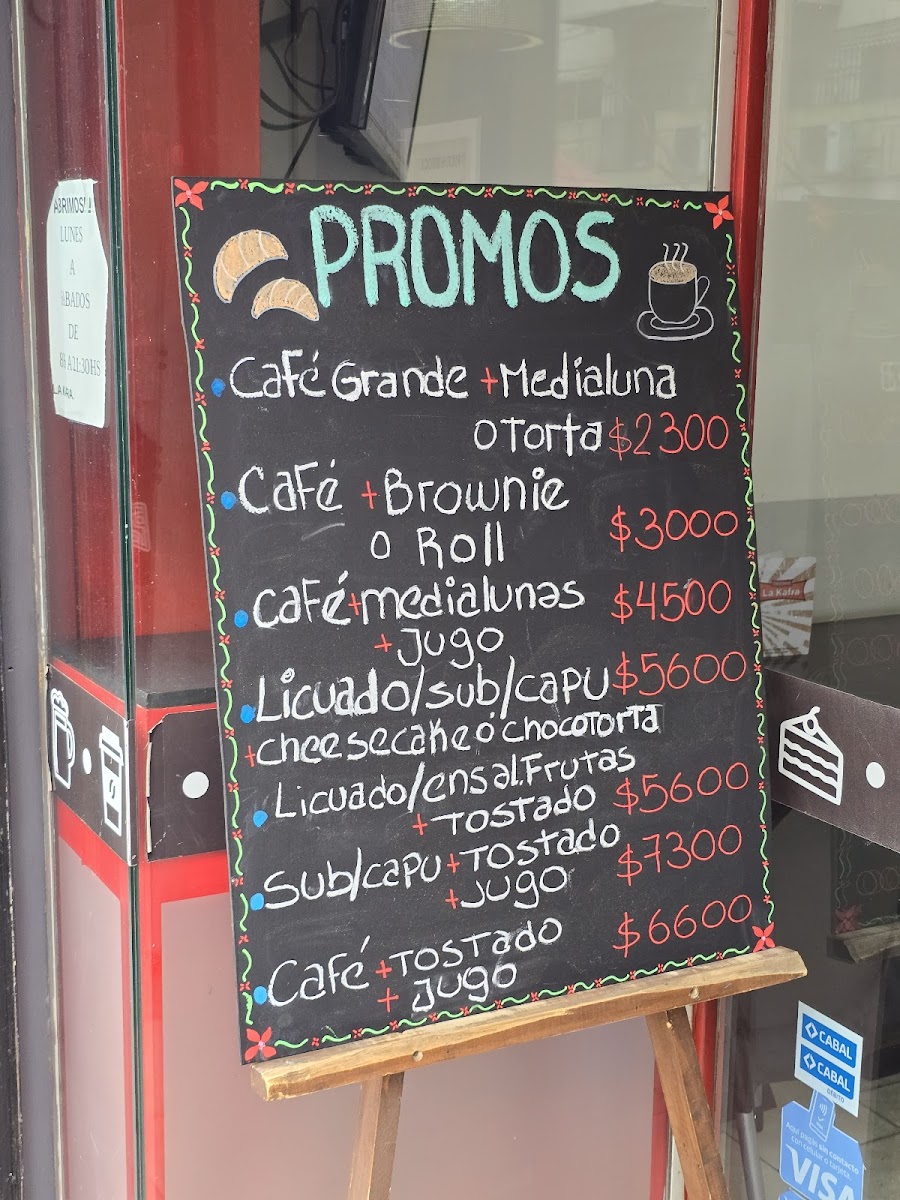 ABRIMOS!
LUNES
A
DE
PROMOS
Café Grande + Medialuna
o Torta $2300
Café + Brownie
o Roll $3000
café + medialunas $4500
+ Jugo
Licuado/sub/capu $5600
+ cheesecake ó chocotorta
Licuado/ensal.Frutas
+ Tostado $5600
Sub/capu + Tostado $7300
+ Jugo
Café + Tostado $6600
+ Jugo
La Kafra
CABAL
CABAL
Aquí pagás sin contacto
con celular o tarjeta.
VISA